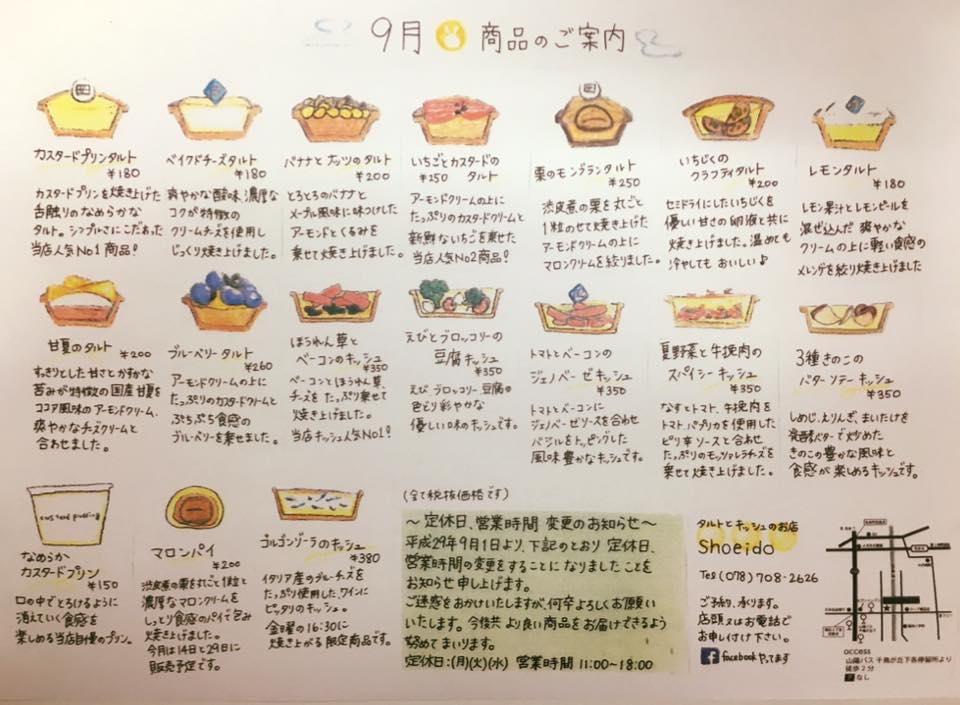 9月 商品のご案内
カスタードプリンタルト
¥180
カスタードプリンを焼き上げた
舌触りのなめらかな
タルト。シンプルさにこだわった
当店人気No1商品!
ベイクドチーズタルト
¥180
爽やかな酸味、濃厚な
コクが特徴の
クリームチーズを使用し
じっくり焼き上げました。
バナナとナッツのタルト
¥200
とろとろのバナナと
メープル風味に味つけした
アーモンドとくるみを
乗せて焼き上げました。
いちごとカスタードの
¥250 タルト
アーモンドクリームに
たっぷりのカスタードクリームと
新鮮ないちごを乗せた
当店人気No2商品!
栗のモンブランタルト
¥250
渋皮煮の栗を丸ごと
1粒のせて焼き上げた
アーモンドクリームの上に
マロンクリームを絞りました。
いちじくの
クラフティタルト
¥200
セミドライにしたいちじくを
優しい甘さの卵液と共に
焼き上げました。温めても
冷やしても おいしい♪
レモンタルト
¥180
レモン果汁とレモンピールを
混ぜ込んだ 爽やかな
クリームの上に軽い食感の
メレンゲを絞り焼き上げました
甘夏のタルト ¥200
すっきりとした甘さとかすかな
苦みが特徴の国産甘夏を
ココア風味のアーモンドクリーム、
爽やかなチーズクリームと
合わせました。
ブルーベリータルト
¥260
アーモンドクリームの上に
たっぷりのカスタードクリームと
ぷちぷち食感の
ブルーベリーを乗せました。
ほうれん草と
ベーコンのキッシュ
¥350
ベーコンとほうれん草、
チーズをたっぷり乗せて
焼き上げました。
当店キッシュ人気No1!
えびとブロッコリーの
豆腐キッシュ
¥350
えび、ブロッコリー、豆腐の
色どり彩やかな
優しい味のキッシュです。
トマトとベーコンの
ジェノベーゼキッシュ
¥350
トマトとベーコンに
ジェノベーゼソースを合わせ
バジルをトッピングした
風味豊かなキッシュです。
夏野菜と牛挽肉の
スパイシーキッシュ
¥350
なすとトマト、牛挽肉を
トマト、パプリカを使用した
ピリ辛ソースと合わせ
たっぷりのモッツァレラチーズを
乗せて焼き上げました。
3種きのこの
バターソテーキッシュ
¥350
しめじ、えりんぎ、まいたけを
発酵バターで炒めた
きのこの豊かな風味と
食感が楽しめるキッシュです。
custard pudding
なめらか
カスタードプリン
¥150
口の中でとろけるように
消えていく食感を
楽しめる当店自慢のプリン。
マロンパイ
¥200
渋皮煮の栗を丸ごと1粒と
濃厚なマロンクリームを
しっとり食感のパイで包み
焼き上げました。
今月は14日と29日に
販売予定です。
ゴルゴンゾーラのキッシュ
¥380
イタリア産のブルーチーズを
たっぷり使用した、ワインに
ピッタリのキッシュ。
金曜の16:30に
焼き上がる限定商品です。
(全て税抜価格です)
～定休日、営業時間 変更のお知らせ～
平成29年9月1日より、下記のとおり 定休日、
営業時間の変更をすることに なりましたことを
お知らせ申し上げます。
ご迷惑をおかけいたしますが、何卒よろしくお願い
いたします。今後共 より良い商品をお届けできるよう
努めてまいります。
定休日:(月)(火)(水) 営業時間 11:00~18:00
タルトとキッシュのお店
Shoeido
Tel (078) 708-2626
ご予約、承ります。
店頭又はお電話で
お申し付け下さい。
facebookやってます
access
山陽バス 千鳥が丘下各停留所より
徒歩2分
P なし